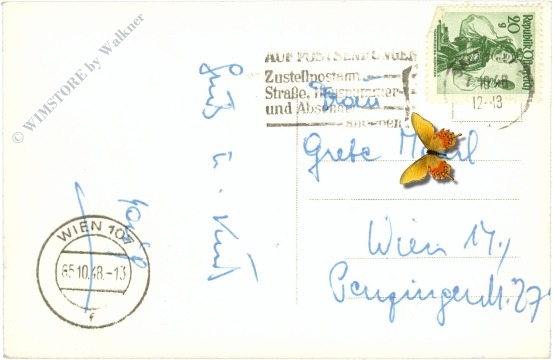 © WIMSTORE by Walkner
AUF POSTSENDUNGEN
Zustellpostamt
Straße, Hausnummer
und Absender
Republik Österreich
20 g
10.48
12-13
Frau
Grete
Wien 14.,
Gruß u. Kuß
WIEN 107
10.48.-13
f